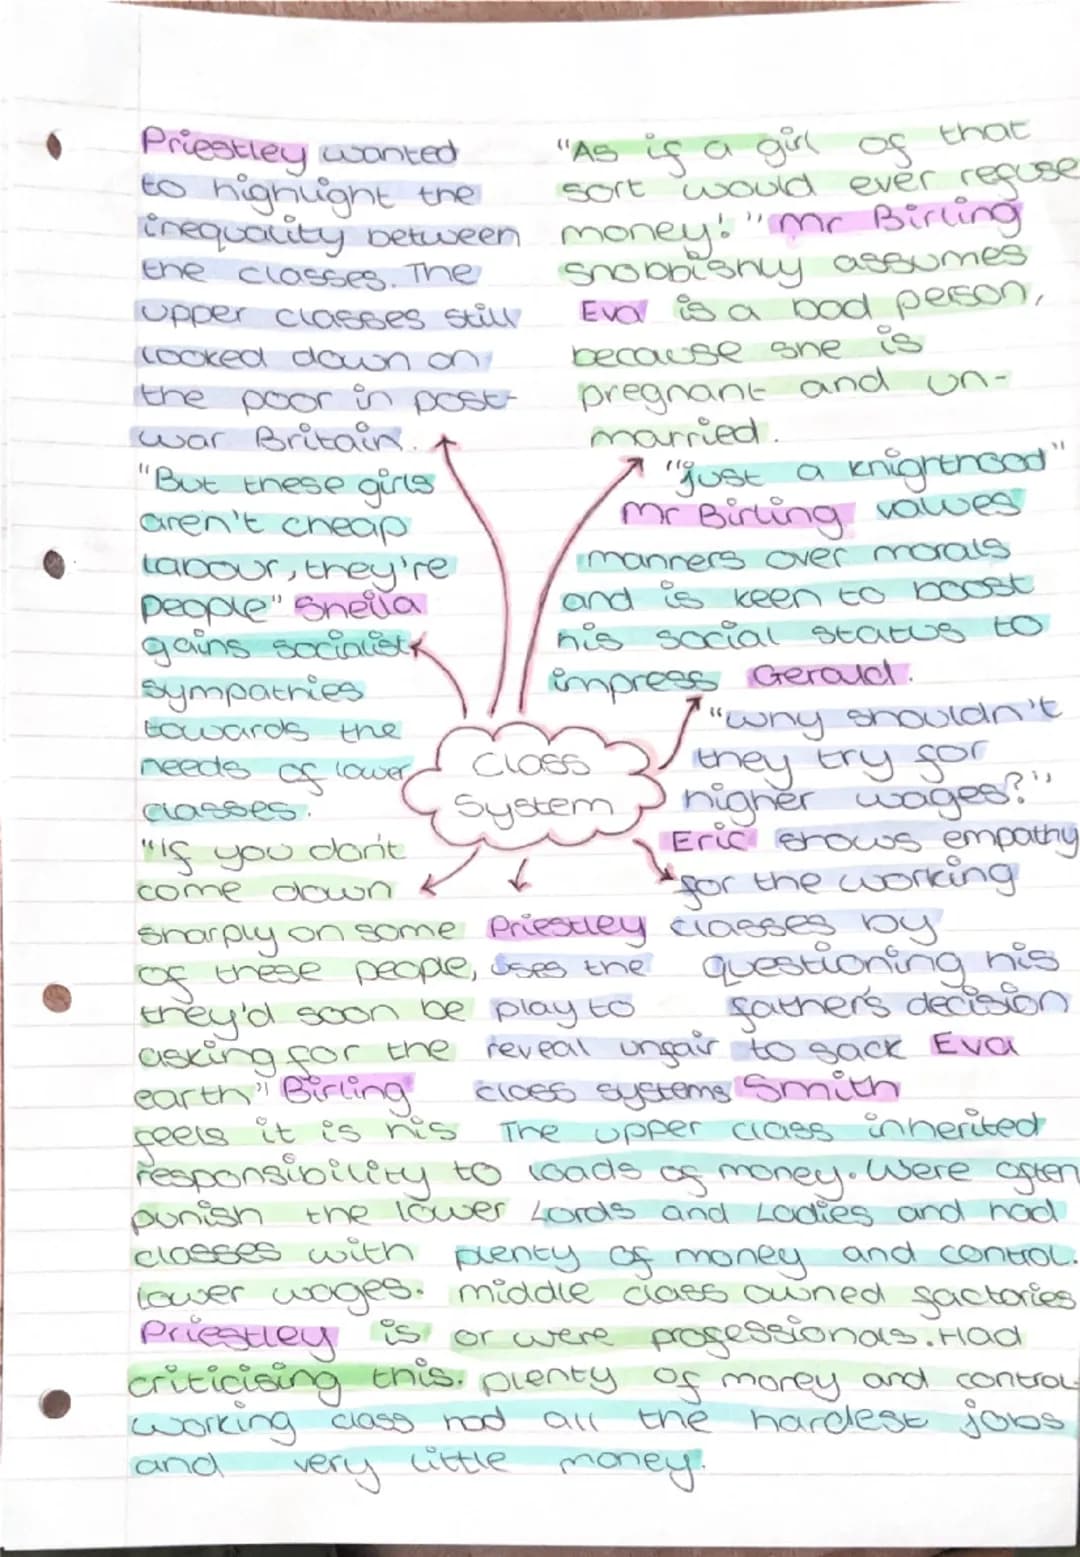 Priestley wanted
to highlight the
inequality between
the classes. The
upper classes still
looked down on
the poor in post-
war Britain.
"As if a girl of that
sort would ever refuse
money!" Mr Birling
snobbishly assumes
Eva is a bad person,
because she is
pregnant and un-
married.
"But these girls
aren't cheap
labour, they're
people" Sheila
gains socialist
sympathies
towards the
needs of lower
classes.
"just a knighthood"
Mr Birling values
manners over morals
and is keen to boost
his social status to
impress Gerald.
Class
System
"why shouldn't
they try for
higher wages?"
Eric shows empathy
for the working
classes by
questioning his
father's decision
to sack Eva
Smith
"If you don't
come down
sharply on some
of these people,
they'd soon be
asking for the
earth" Birling
feels it is his
responsibility to
punish the lower
classes with
lower wages.
Priestley is
criticising this.
Priestley
uses the
play to
reveal unfair
class systems
The upper class inherited
loads of money. Were often
Lords and Ladies and had
plenty of money and control.
middle class owned factories
or were professionals. Had
plenty of money and control
working class had all the hardest jobs
and very little money.